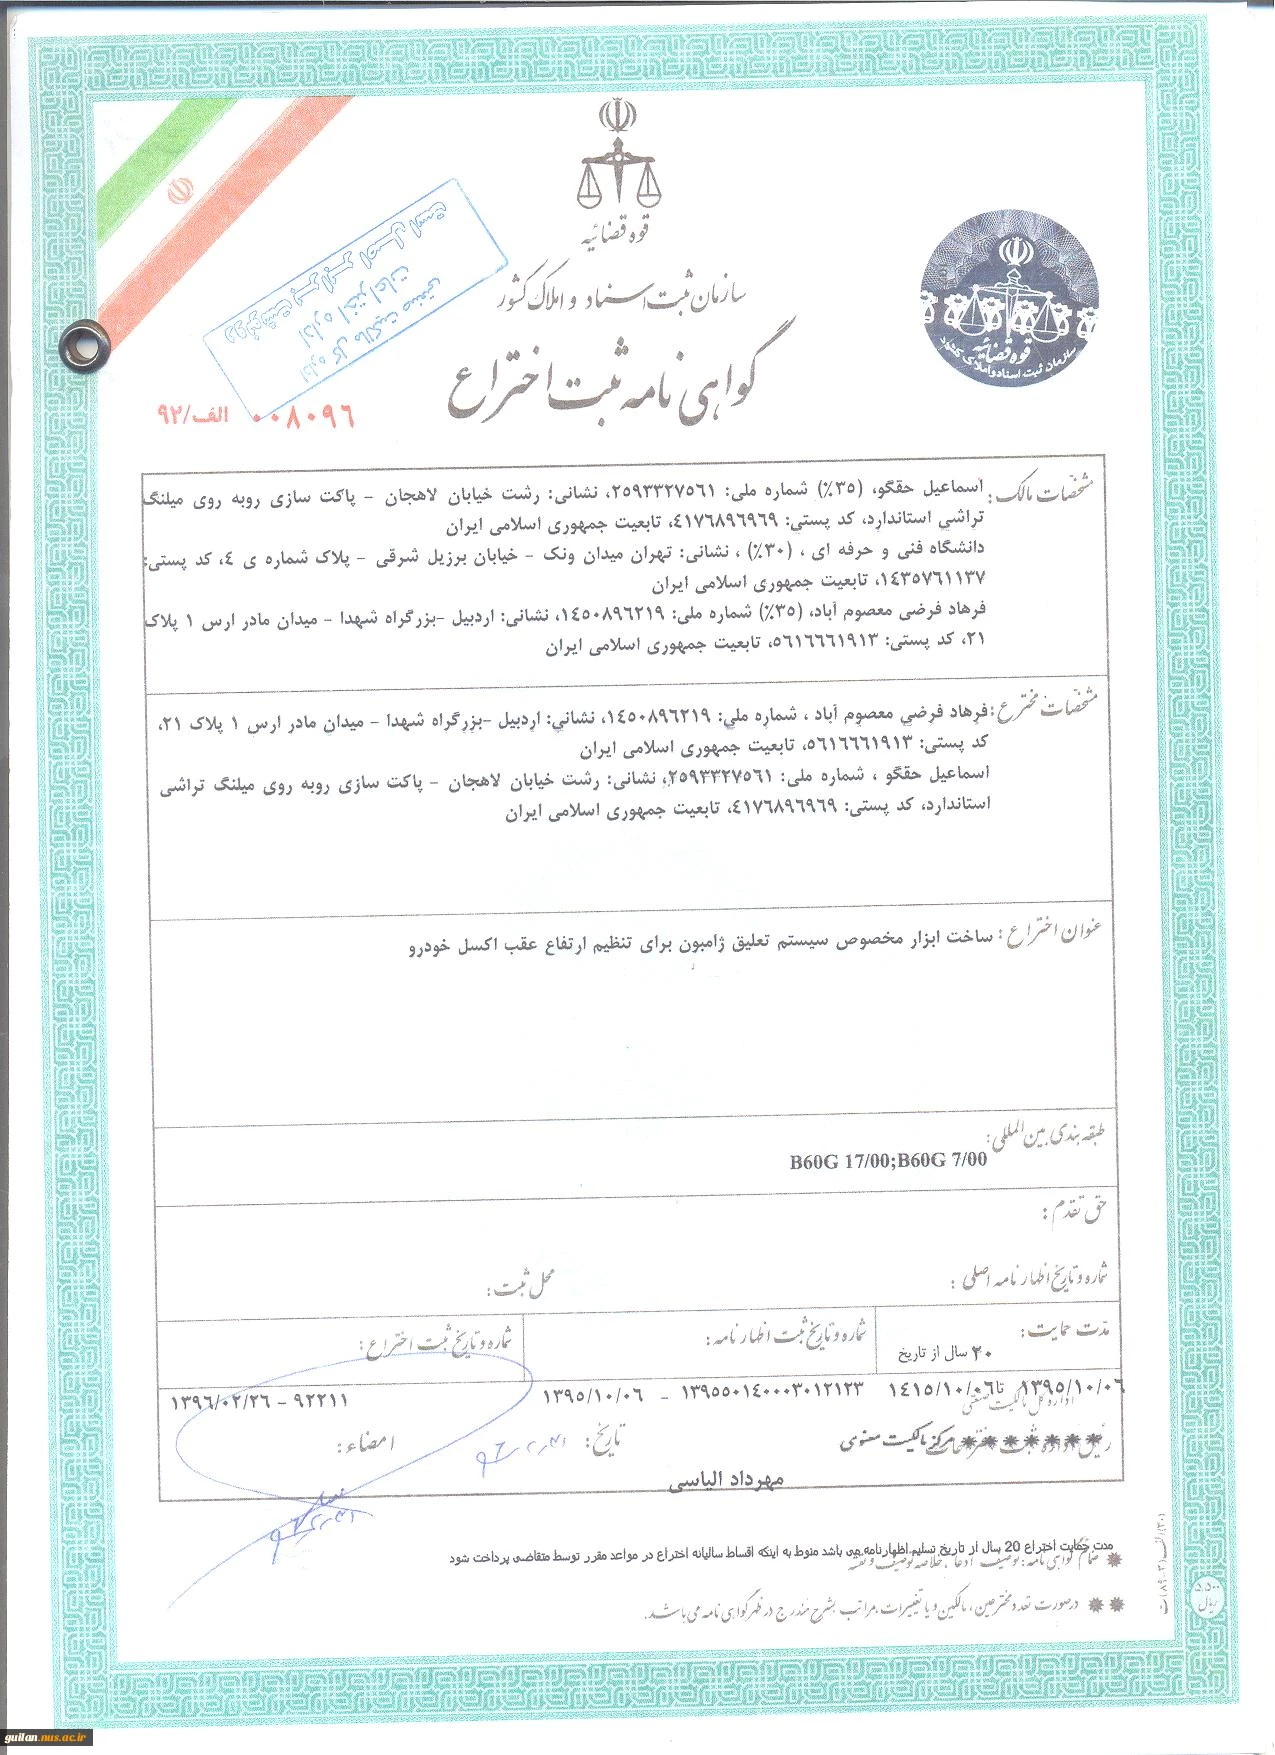 قوه قضائیه
سازمان ثبت اسناد و املاک کشور
گواهی نامه ثبت اختراع
الف/۹۲ ۰۰۸۰۹۶
اداره کل مالکیت صنعتی
اداره اختراعات
رونوشت برابر اصل است
قوه قضائیه
سازمان ثبت اسناد و املاک کشور
مشخصات مالک: اسماعیل حقگو، (۳۵٪) شماره ملی: ۲۵۹۳۳۲۷۵۶۱، نشانی: رشت خیابان لاهجان - پاکت سازی روبه روی میلنگ
تراشی استاندارد، کد پستی: ۴۱۷۶۸۹۶۹۶۹، تابعیت جمهوری اسلامی ایران
دانشگاه فنی و حرفه ای ، (۳۰٪) ، نشانی: تهران میدان ونک - خیابان برزیل شرقی - پلاک شماره ی ۴، کد پستی:
۱۴۳۵۷۶۱۱۳۷، تابعیت جمهوری اسلامی ایران
فرهاد فرضی معصوم آباد، (۳۵٪) شماره ملی: ۱۴۵۰۸۹۶۲۱۹، نشانی: اردبیل -بزرگراه شهدا - میدان مادر ارس ۱ پلاک
۲۱، کد پستی: ۵۶۱۶۶۶۱۹۱۳، تابعیت جمهوری اسلامی ایران
مشخصات مخترع: فرهاد فرضي معصوم آباد ، شماره ملي: ۱۴۵۰۸۹۶۲۱۹، نشاني: اردبیل -بزرگراه شهدا - میدان مادر ارس ۱ پلاک ۲۱،
کد پستی: ۵۶۱۶۶۶۱۹۱۳، تابعیت جمهوری اسلامی ایران
اسماعیل حقگو ، شماره ملی: ۲۵۹۳۳۲۷۵۶۱، نشانی: رشت خیابان لاهجان - پاکت سازی روبه روی میلنگ تراشی
استاندارد، کد پستی: ۴۱۷۶۸۹۶۹۶۹، تابعیت جمهوری اسلامی ایران
عنوان اختراع: ساخت ابزار مخصوص سیستم تعلیق ژامبون برای تنظیم ارتفاع عقب اکسل خودرو
طبقه بندی بین المللی:
B60G 17/00;B60G 7/00
حق تقدم:
شماره و تاریخ اظهارنامه اصلی: محل ثبت:
مدت حمایت: شماره و تاریخ ثبت اظهارنامه: شماره و تاریخ ثبت اختراع:
۲۰ سال از تاریخ
۱۳۹۵/۱۰/۰۶ تا ۱۴۱۵/۱۰/۰۶ ۱۳۹۵۵۰۱۴۰۰۰۳۰۱۲۱۲۳ - ۱۳۹۵/۱۰/۰۶ ۹۲۲۱۱ - ۱۳۹۶/۰۲/۲۶
اداره کل مالکیت صنعتی
مرکز مالکیت معنوی تاریخ: امضاء:
مهرداد الیاسی
مدت حمایت اختراع 20 سال از تاریخ تسلیم اظهارنامه می باشد منوط به اینکه اقساط سالیانه اختراع در مواعد مقرر توسط متقاضی پرداخت شود
ضمائم گواهی نامه: توصیف، ادعا، خلاصه توصیف و نقشه
درصورت تعدد مخترعین، مالکین و یا تغییرات، مراتب بشرح مندرج در ظهر گواهی نامه می باشد.
۵,۵۰۰
ریال
guilan.nus.ac.ir